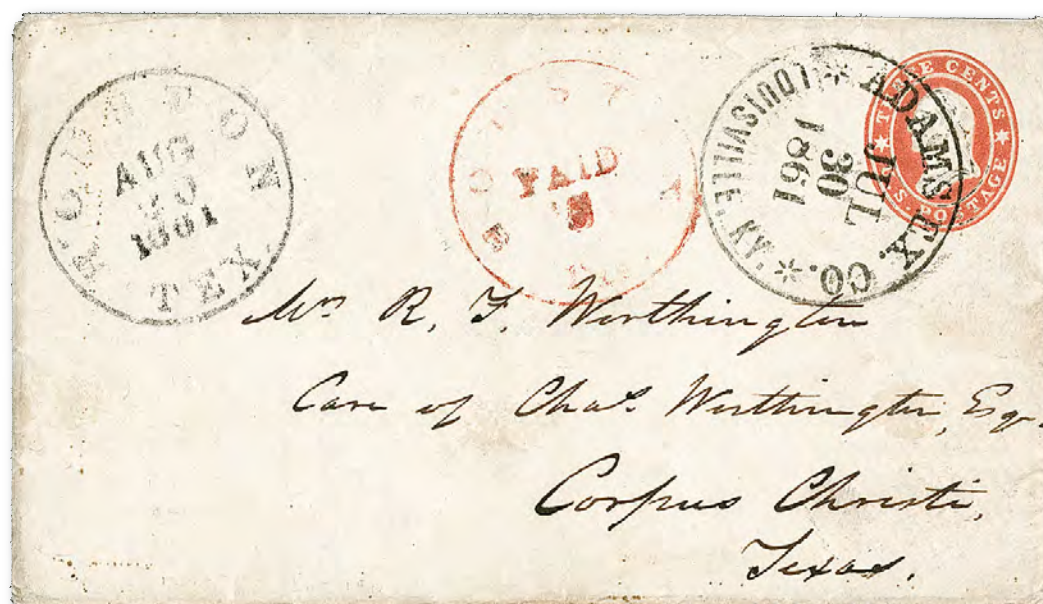 HOUSTON
AUG
1861
TEX.
PAID
5
ADAMS EX. CO. * LOUISVILLE, KY. *
JUL
30
1861
THREE CENTS
U.S. POSTAGE
Mr R. F. Worthington
Care of Chas. Worthington, Esqr.
Corpus Christi,
Texas.